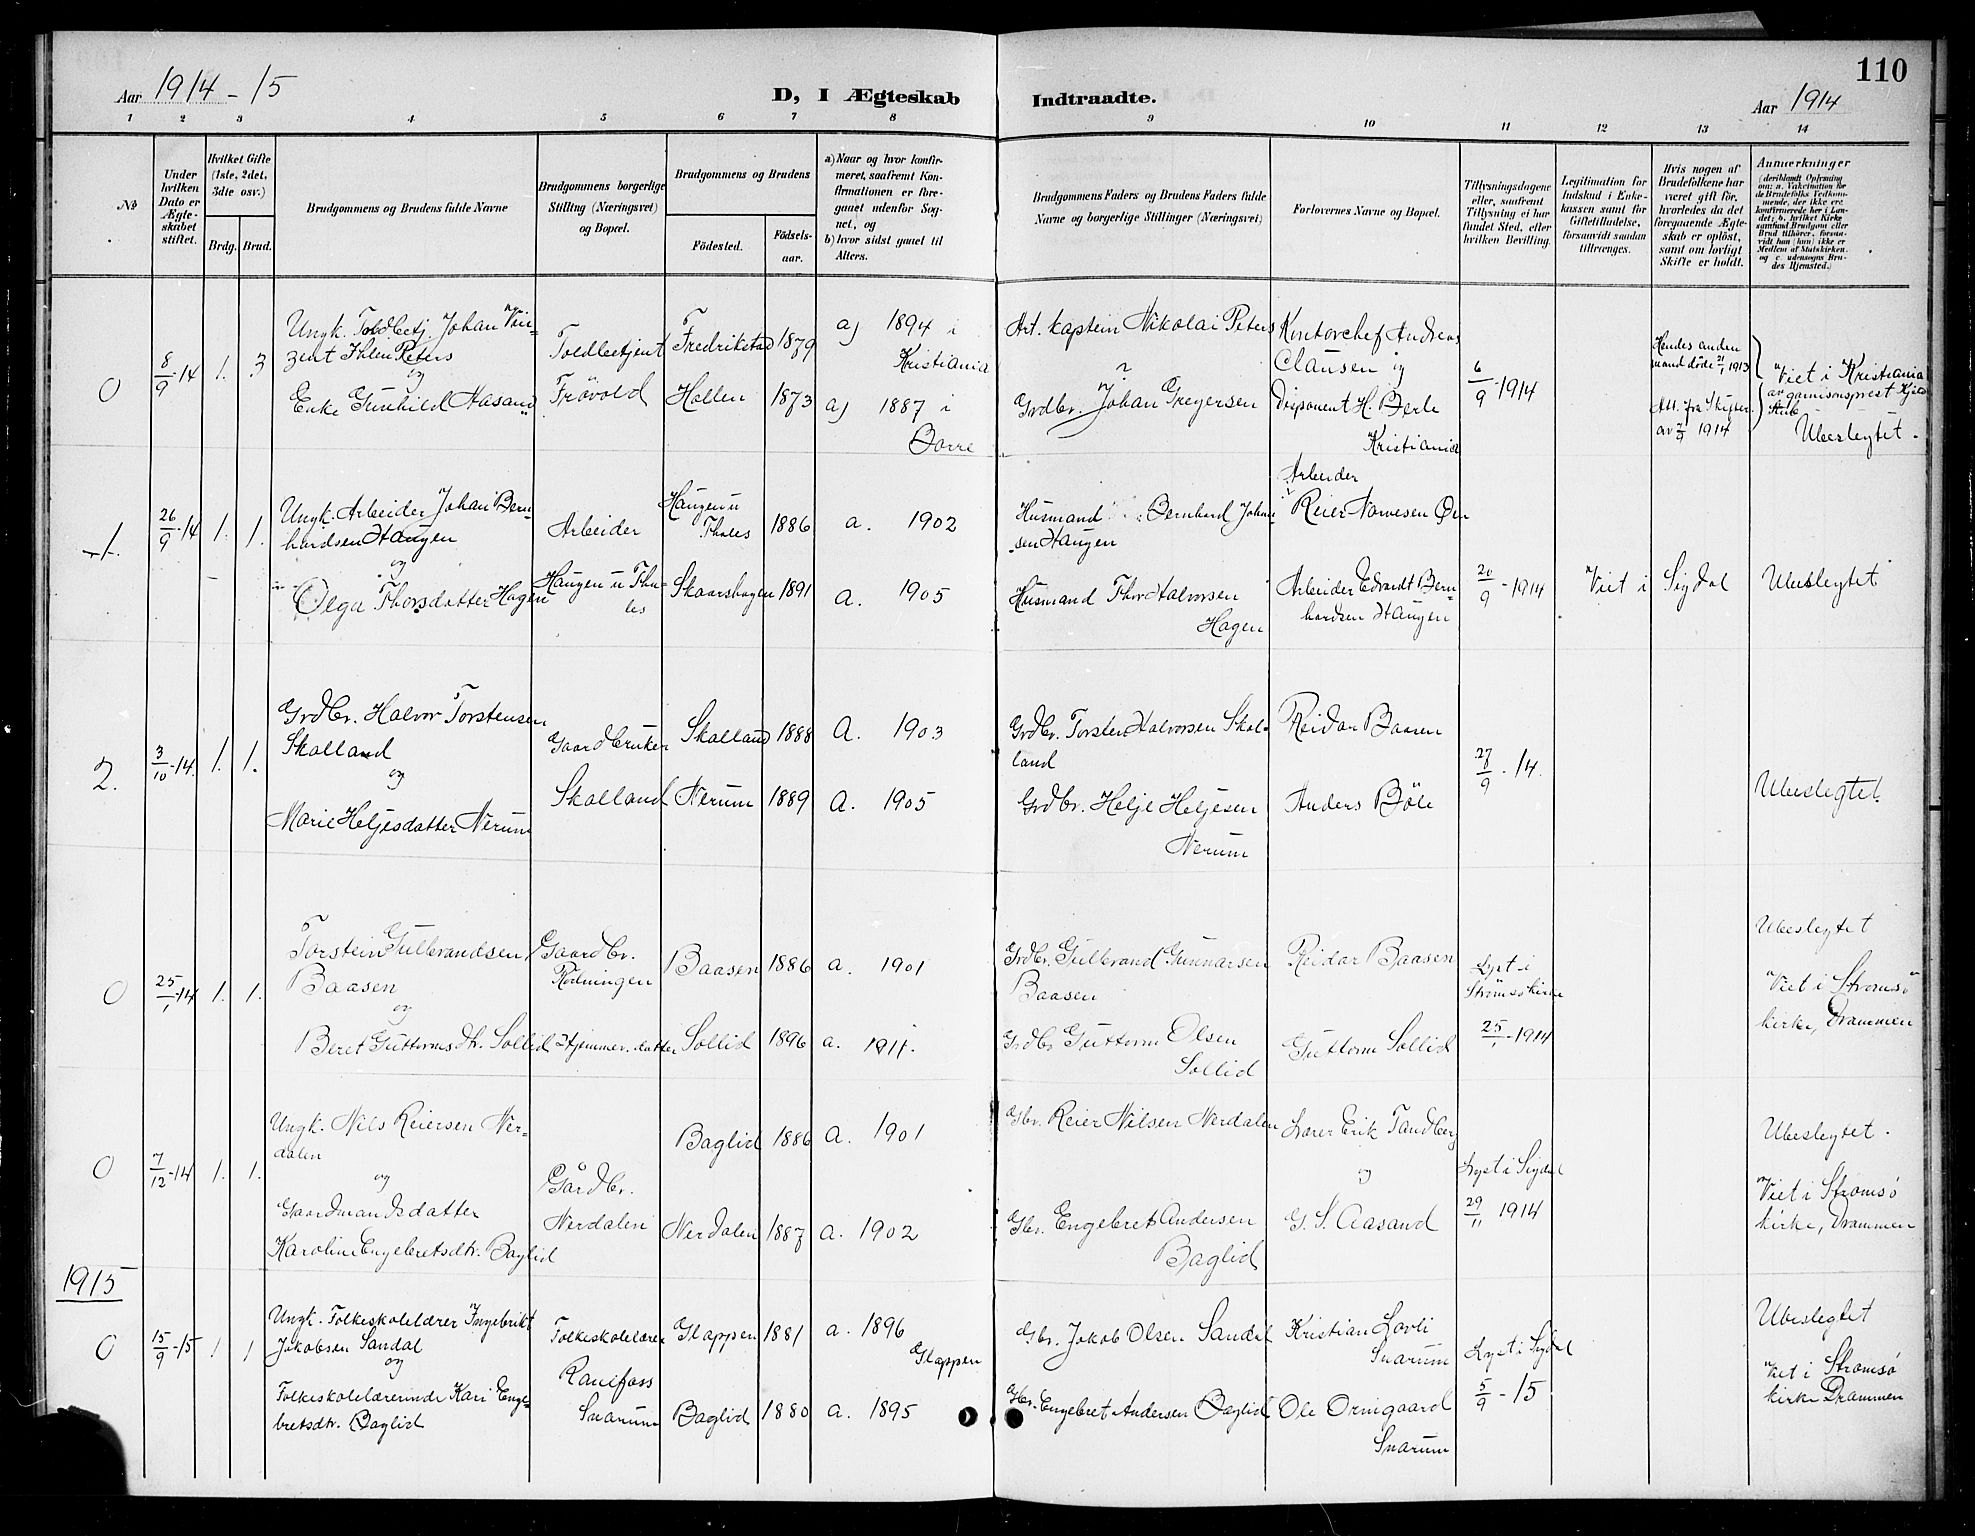 Aar 1914-15
D, I Ægteskab Indtraadte.
110
Aar 1914
1 2 3 4 5 6 7 8 9 10 11 12 13 14
No
Under hvilken Dato er Ægteskabet stiftet.
Hvilket Gifte (1ste, 2det, 3dte osv.)
Brdg. Brud.
Brudgommens og Brudens fulde Navne
Brudgommens borgerlige Stilling (Næringsvei) og Bopæl.
Brudgommens og Brudens
Fødested.
Fødsels-aar.
a) Naar og hvor konfirmeret, saafremt Konfirmationen er foregaaet udenfor Sognet, og
b) hvor sidst gaaet til Alters.
Brudgommens Faders og Brudens Faders fulde Navne og borgerlige Stillinger (Næringsvei)
Forlovernes Navne og Bopæl.
Tillysningsdagene eller, saafremt Tillysning ei har fundet Sted, efter hvilken Bevilling.
Legitimation for Indskud i Enkekassen samt for Giftetilladelse, forsaavidt saadan tiltrænges.
Hvis nogen af Brudefolkene har været gift før, hvorledes da det foregaaende Ægteskab er opløst, samt om lovligt Skifte er holdt.
Anmerkninger
(deriblandt Opførsing om: a. Vakcination for de Brudefolks Vedkommende, der ikke ere konfirmerede her i Landet; b. hvilket Kirkesamfund Brudgom eller Brud tilhører, forsaavidt han (hun) ikke er Medlem af Statskirken. og c. udensogns Brudes Hjemsted.)
0
8/9-14 1. 3
Ungk. Toldbetj. Johan Vin-
zent Ihlen Peters
og
Enke Gunhild Aasand
Toldbetjent
Frövold
Fredrikstad 1879
Hollen 1873
a) 1894 i
Kristiania
a) 1887 i
Borre
Art. kaptein Nikolai Peters
Grdbr. Johan Gregersen
Kontorchef Andreas
Clausen og
Disponent H. Berle
Kristiania
6/9-1914
Hendes anden
mand døde 21/1 1913
Att. fra Skifter.
av 7/9 1914
Viet i Kristiania
av garnisonsprest Kjeld
Stub
Ubeslegtet.
1.
26/9-14 1. 1.
Ungk. Arbeider Johan Bern-
hardsen Haugen
og
Olga Thorsdatter Hagen
Arbeider
Haugen u Tho-
les
Haugen u
Tholes 1886
Skaarshagen 1891
a. 1902
a. 1905
Husmand Bernhard Johan-
sen Haugen
Husmand Thor Halvorsen
Hagen
Arbeider
Reier Narvesen Øen
Arbeider Edvardt Bern-
hardsen Haugen
20/9-1914
Viet i Sigdal
Ubeslegtet
2.
3/10-14. 1. 1.
Grdbr. Halvor Torstensen
Skalland
og
Marie Heljesdatter Nerum
Gaardbruker
Skalland
Skalland 1888
Nerum 1889
A. 1903
A. 1905
Grdbr. Torsten Halvorsen Skal-
land
Grdbr. Helje Heljesen
Nerum
Reidar Baasen
Anders Böle
27/9-14.
Ubeslegtet.
0
25/1-14 1. 1.
Torstein Gulbrandsen
Baasen
og
Beret Guttormsdtr. Sollid
Gaardbr.
Rödningen
Hjemmev. datter
Baasen 1886
Sollid 1896
a. 1901
a. 1911.
Grdbr. Gulbrand Gunnarsen
Baasen
Grdbr Guttorm Olsen
Sollid
Reidar Baasen
Guttorm Sollid
Lyst i
Strömsö kirke
25/1-1914
Ubeslegtet
Viet i Stromsö
kirke, Drammen
0
7/12-14 1. 1.
Ungk. Nils Reiersen Ner-
dalen
og
Gaardmandsdatter
Karoline Engebretsdtr. Baglid
Gårdbr.
Nerdalen
Baglid 1886
Nerdalen 1887
A. 1901
a. 1902
Gbr. Reier Nilsen Nerdalen
Gbr. Engebret Andersen
Baglid
Lærer Erik Tandberg
og
G. S. Aasand
Lyst i Sigdal
29/11 1914
Ubeslegtet.
Viet i Stromsö
kirke, Drammen
1915
0
15/9-15 1 1
Ungk. Folkeskolelærer Ingebrikt
Jakobsen Sandal
og
Folkeskolelærerinde Kari Enge-
bretsdtr. Baglid
Folkeskolelærer
Ranifoss
Snarum
Glappen 1881
Baglid 1880
a. 1896
Glappen
a. 1895
Gbr. Jakob Olsen Sandal
Gbr. Engebret Andersen Baglid
Kristian Lovli
Snarum
Ole Ornigaard
Snarum
Lyst i Sigdal
5/9-15
Ubeslegtet
Viet i Stromsö
kirke Drammen